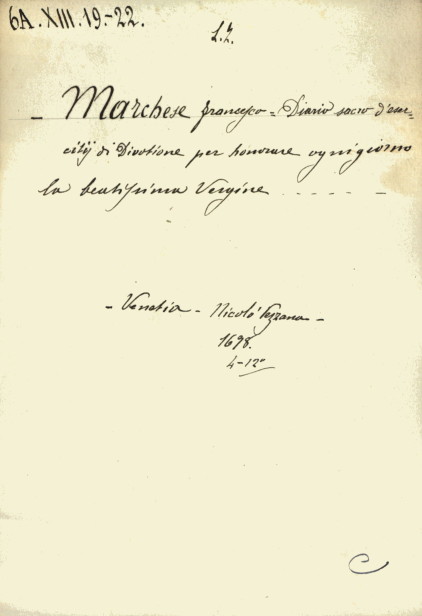 6A. XIII. 19.-22.
L.Z.
- Marchese francesco = Diario sacro d'eser-
citij di Divotione per honorare ogni giorno
la beatissima Vergine . . . . . -
- Venetia - Nicolò Pezzana -
1698.
4-12°
C